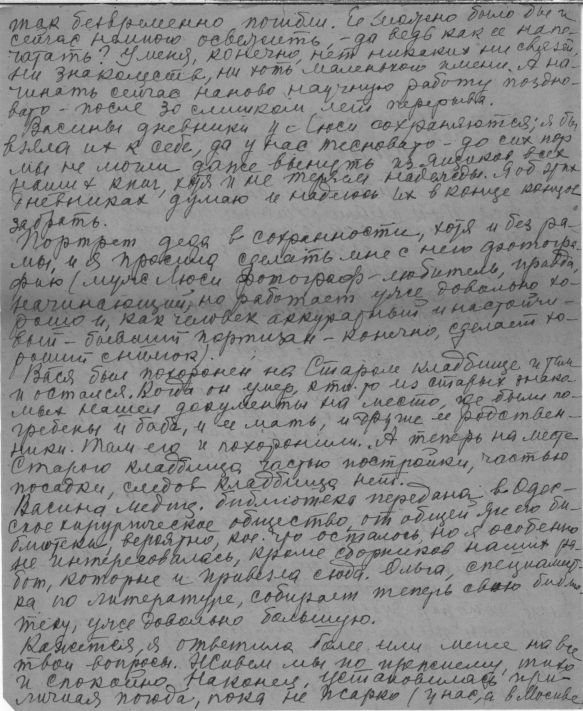 так безвременно погибли. Ее можно было бы и
сейчас немного освежить, - да ведь как ее напе-
чатать? У меня, конечно, нет никаких ни связей
ни знакомств, ни хоть маленького имени. А на-
чинать сейчас наново научную работу поздно-
вато - после 30 слишком лет перерыва.
Васины дневники у Люси сохраняются; я бы
взяла их к себе, да у нас тесновато - до сих пор
мы не могли даже вынуть из ящиков всех
наших книг, хотя и не теряем надежды. Я об этих
дневниках думаю и надеюсь их в конце концов
забрать.
Портрет деда в сохранности, хотя и без ра-
мы, и я просила сделать мне с него фотогра-
фию (муж Люси фотограф-любитель, правда
начинающий, но работает уже довольно хо-
рошо и, как человек аккуратный и настойчи-
вый - бывший партизан - конечно, сделает хо-
роший снимок).
Вася был похоронен на Старом кладбище и там
и остался. Когда он умер, кто-то из старых знако-
мых нашел документы на место, где были по-
гребены и баба, и ее мать, и другие ее родствен-
ники. Там его и похоронили. А теперь на месте
Старого кладбища частью постройки, частью
посадки, следов кладбища нет.
Васина медиц. библиотека передана в Одес-
ское хирургическое общество, от общей же его би-
блиотеки, вероятно, кое-что осталось, но я особенно
не интересовалась, кроме сборников наших ра-
бот, которые и привезла сюда. Ольга, специалист-
ка по литературе, собирает теперь свою библио-
теку, уже довольно большую.
Кажется, я ответила более или менее на все
твои вопросы. Живем мы по прежнему, тихо
и спокойно. Наконец, установилась при-
личная погода, пока не жарко (у нас, а в Москве